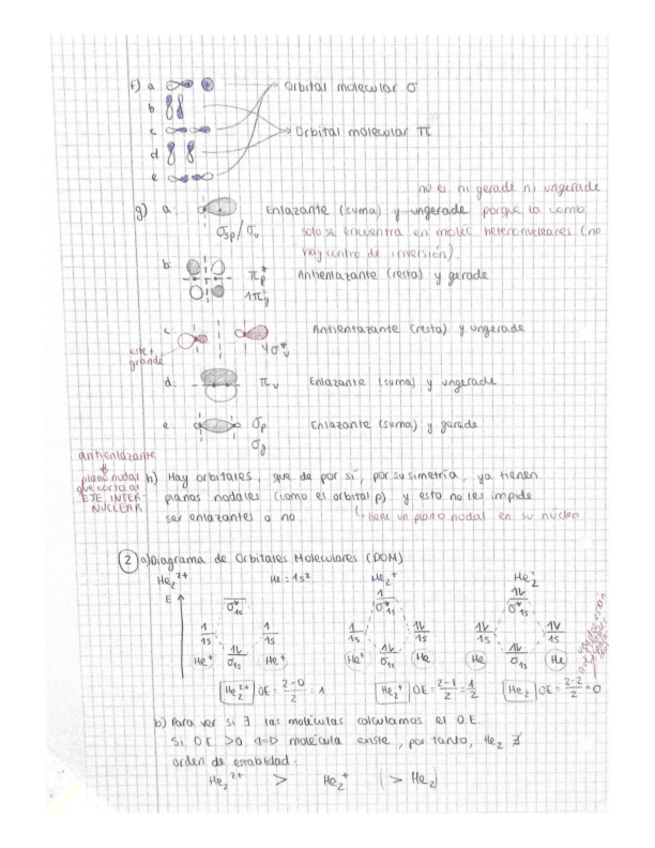 f) a Orbital molecular σ
b
c Orbital molecular π
d
e
no es ni gerade ni ungerade
g) a. Enlazante (suma) y ungerade porque la comb
σsp/σu solo se encuentra en moléc. heteronucleares (no
hay centro de inversión)
b. πp* Antienlazante (resta) y gerade
1πg*
c. Antienlazante (resta) y ungerade
este + grande 4σu*
d. πu Enlazante (suma) y ungerade
e. σp Enlazante (suma) y gerade
σg
antienlazante
plano nudal
que corta al
EJE INTER-
NUCLEAR
h) Hay orbitales, que de por sí, por su simetría, ya tienen
planos nodales (como el orbital p) y esto no les impide
ser enlazantes o no ↳ tiene un plano nodal en su núcleo
2 a) Diagrama de Orbitales Moleculares (DOM)
He₂²⁺ He: 1s² He₂⁺ He₂
E σ*1s 1 σ*1s 1L σ*1s
1 1s 1 1s 1 1s 1L 1s 1L 1s 1L 1s
He⁺ 1L σ1s He⁺ He⁺ 1L σ1s He He 1L σ1s He
He₂²⁺ OE = 2-0/2 = 1 He₂⁺ OE = 2-1/2 = 1/2 He₂ OE = 2-2/2 = 0
b) Para ver si ∃ las moléculas calculamos el O.E.
Si OE >0 ⇔ molécula existe, por tanto, He₂ ∄
orden de estabilidad:
He₂²⁺ > He₂⁺ (> He₂)